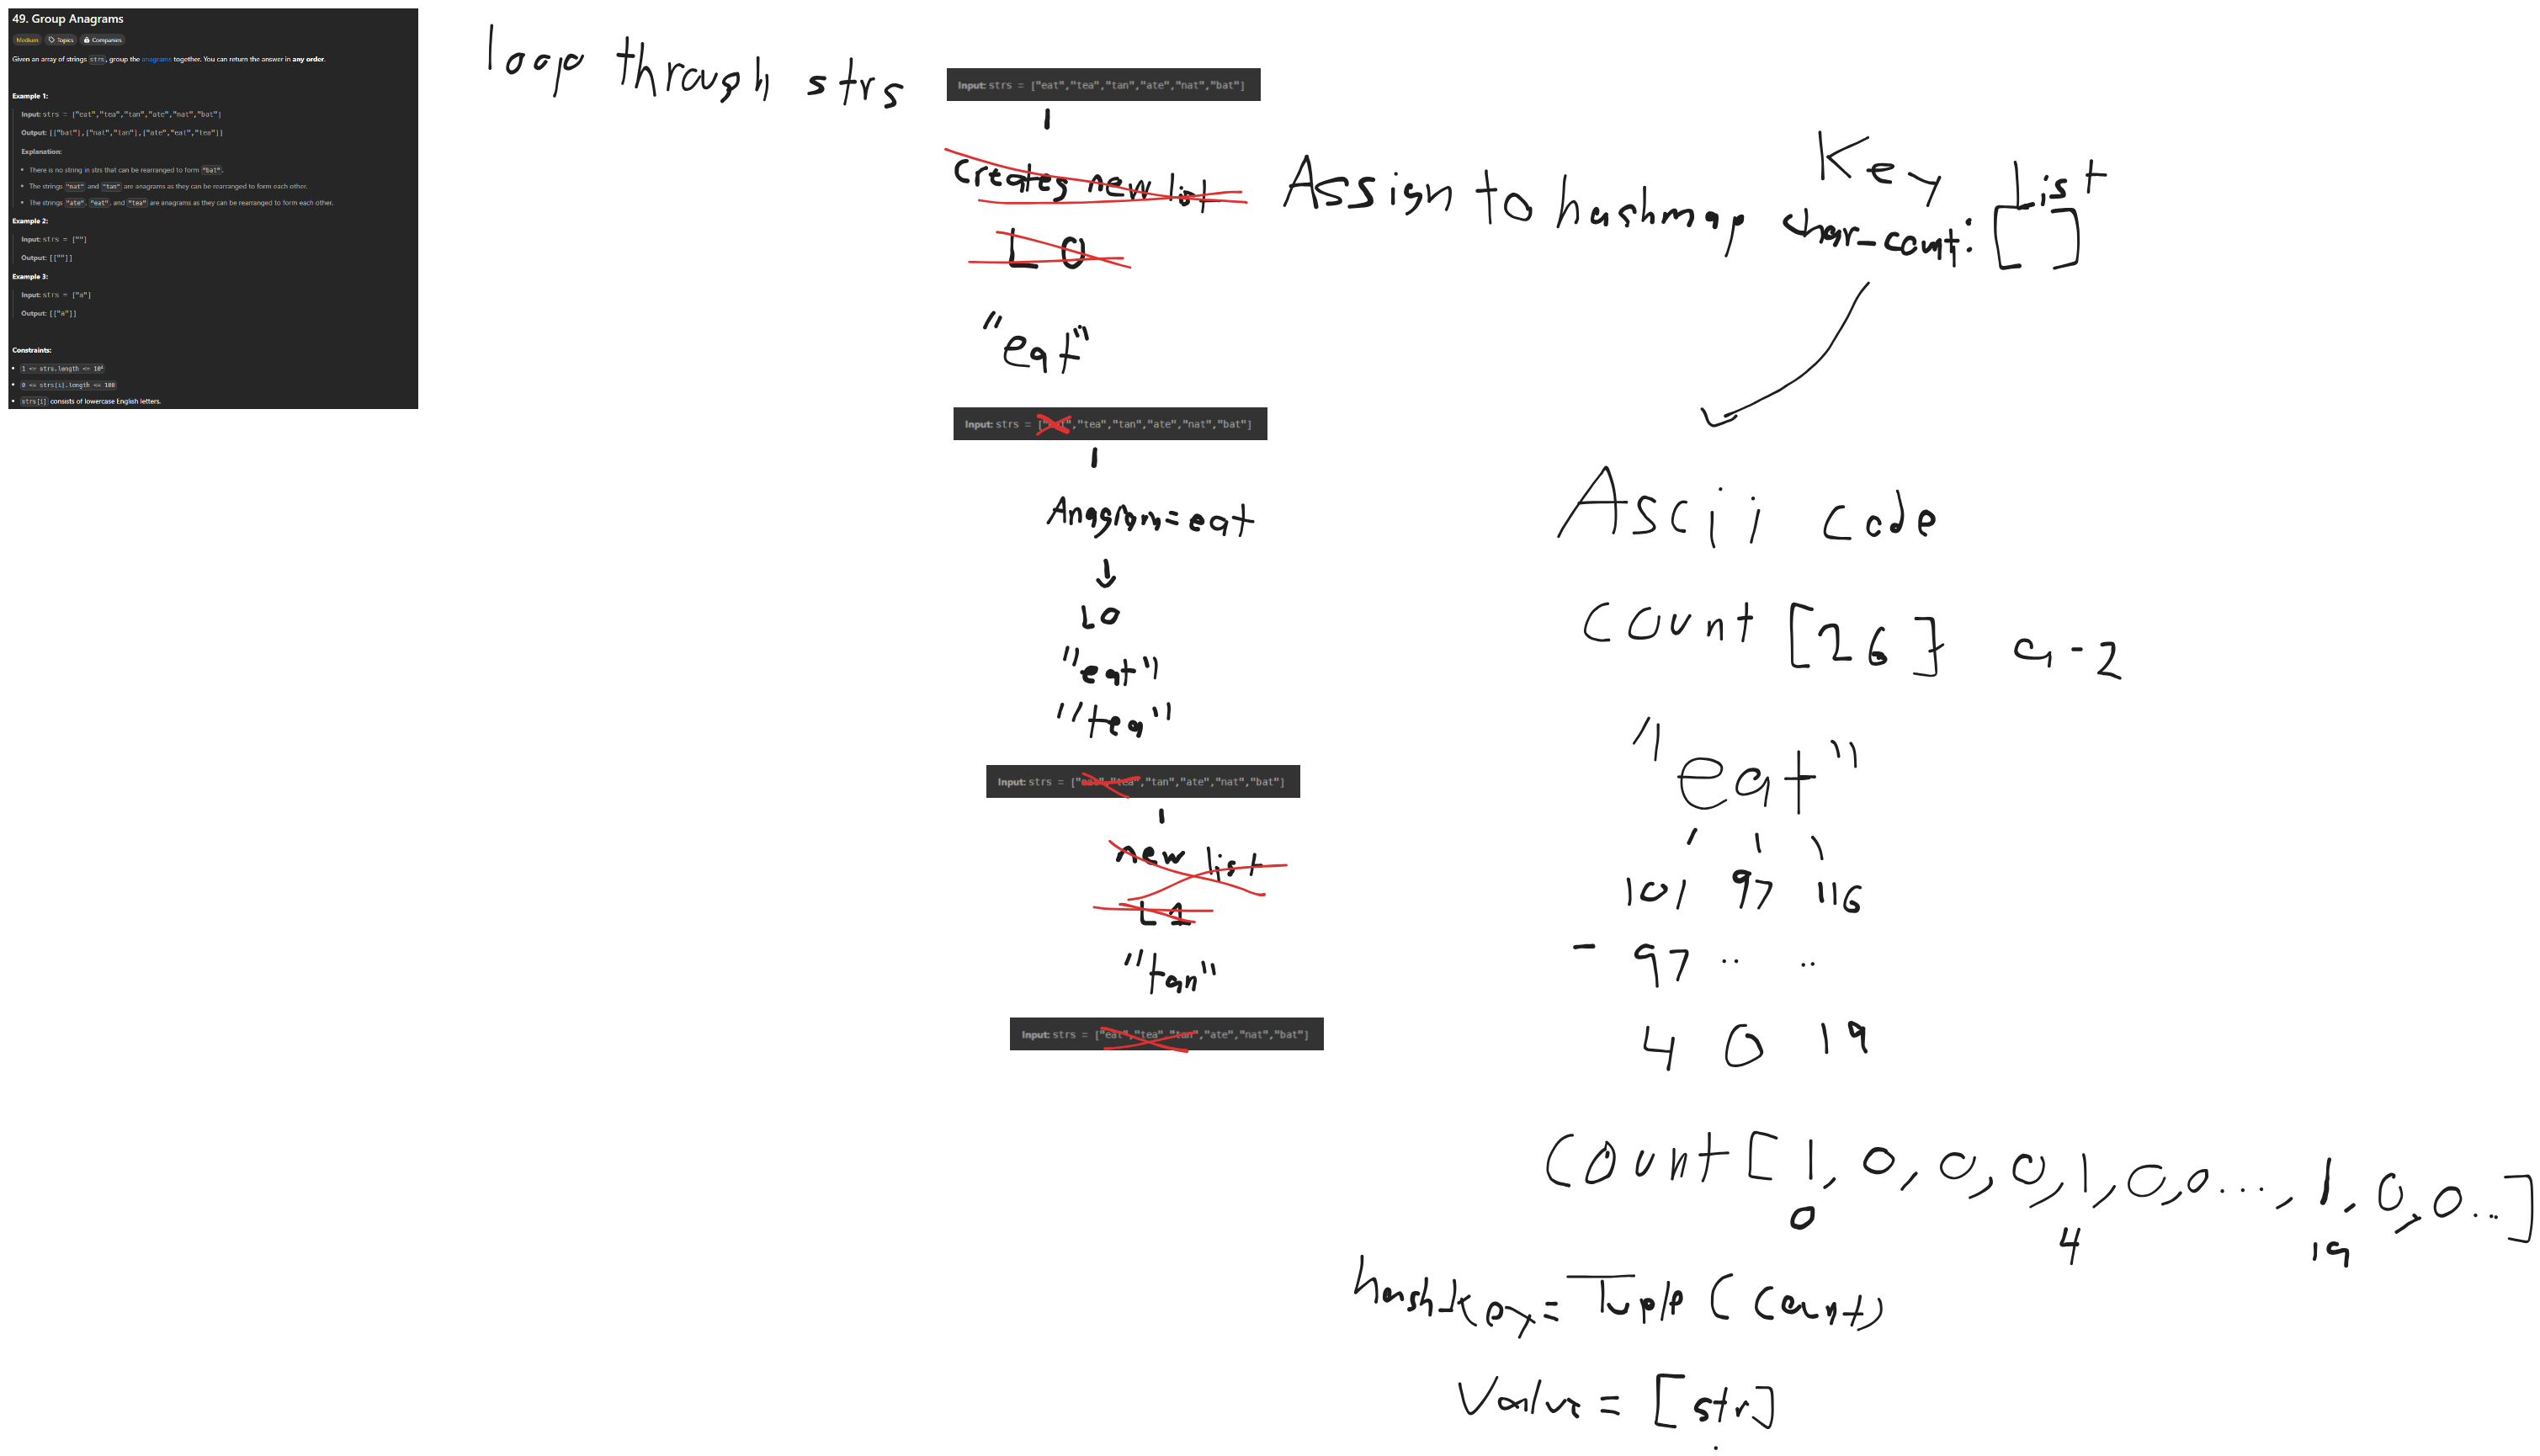 49. Group Anagrams
Medium Topics Companies
Given an array of strings strs, group the anagrams together. You can return the answer in any order.
Example 1:
Input: strs = ["eat","tea","tan","ate","nat","bat"]
Output: [["bat"],["nat","tan"],["ate","eat","tea"]]
Explanation:
• There is no string in strs that can be rearranged to form "bat".
• The strings "nat" and "tan" are anagrams as they can be rearranged to form each other.
• The strings "ate", "eat", and "tea" are anagrams as they can be rearranged to form each other.
Example 2:
Input: strs = [""]
Output: [[""]]
Example 3:
Input: strs = ["a"]
Output: [["a"]]
Constraints:
• 1 <= strs.length <= 10⁴
• 0 <= strs[i].length <= 100
• strs[i] consists of lowercase English letters.
loop through strs
Input: strs = ["eat","tea","tan","ate","nat","bat"]
Creates new list
L0
"eat"
Input: strs = ["eat","tea","tan","ate","nat","bat"]
Anagram = eat
↓
L0
"eat"
"tea"
Input: strs = ["eat","tea","tan","ate","nat","bat"]
new list
L1
"tan"
Input: strs = ["eat","tea","tan","ate","nat","bat"]
Key List
Assign to hashmap char_count: [ ]
Ascii code
count [26] a-z
"eat"
101 97 116
- 97 .. ..
4 0 19
count [1, 0, 0, 0, 1, 0, 0..., 1, 0, 0...]
0 4 19
hash_key = Tuple (count)
Value = [str]